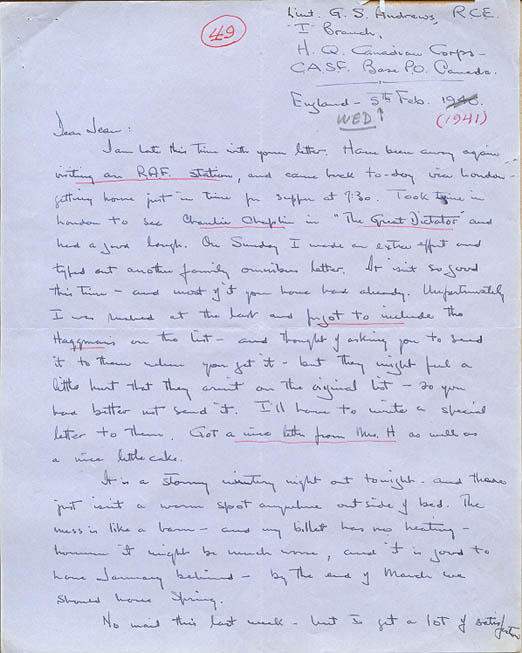 49
Lieut. G. S. Andrews, R.C.E.
"I" Branch,
H. Q. Canadian Corps -
C.A.S.F. Base P.O. Canada.
England - 5th Feb. 1940.
WED (1941)
Dear Jean:
I am late this time with your letter. Have been away again
visiting an R.A.F. station, and came back to-day via London -
getting home just in time for supper at 7:30. Took time in
London to see Charlie Chaplin in "The Great Dictator" and
had a good laugh. On Sunday I made an extra effort and
typed out another family omnibus letter. It isn't so good
this time - and most of it you have had already. Unfortunately
I was rushed at the last and forgot to include the
Haggmans on the list - and thought of asking you to send
it to them when you get it - but they might feel a
little hurt that they aren't on the original list - so you
had better not send it. I'll have to write a special
letter to them. Got a nice letter from Mrs. H as well as
a nice little cake.
It is a stormy night out tonight - and there
just isn't a warm spot anywhere outside of bed. The
mess is like a barn - and my billet has no heating -
however it might be much worse, and it is good to
have January behind - by the end of March we
should have Spring.
No mail this last week - but I get a lot of satisfaction